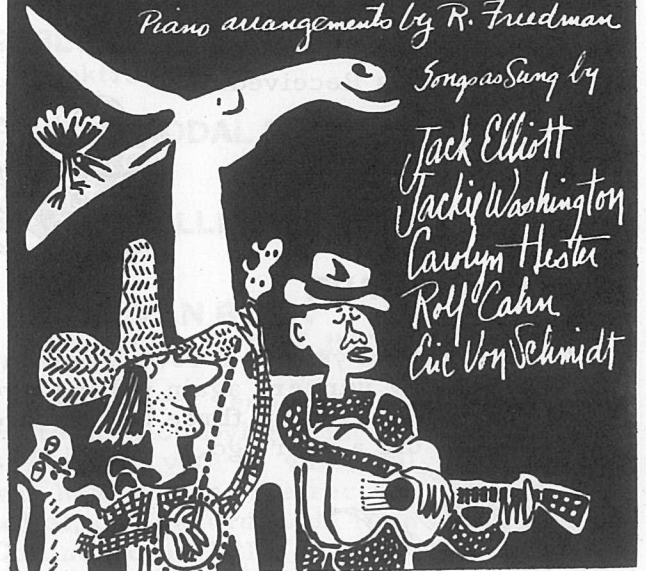 Piano arrangements by R. Freedman
Songs as Sung by
Jack Elliott
Jackie Washington
Carolyn Hester
Rolf Cahn
Eric Von Schmidt